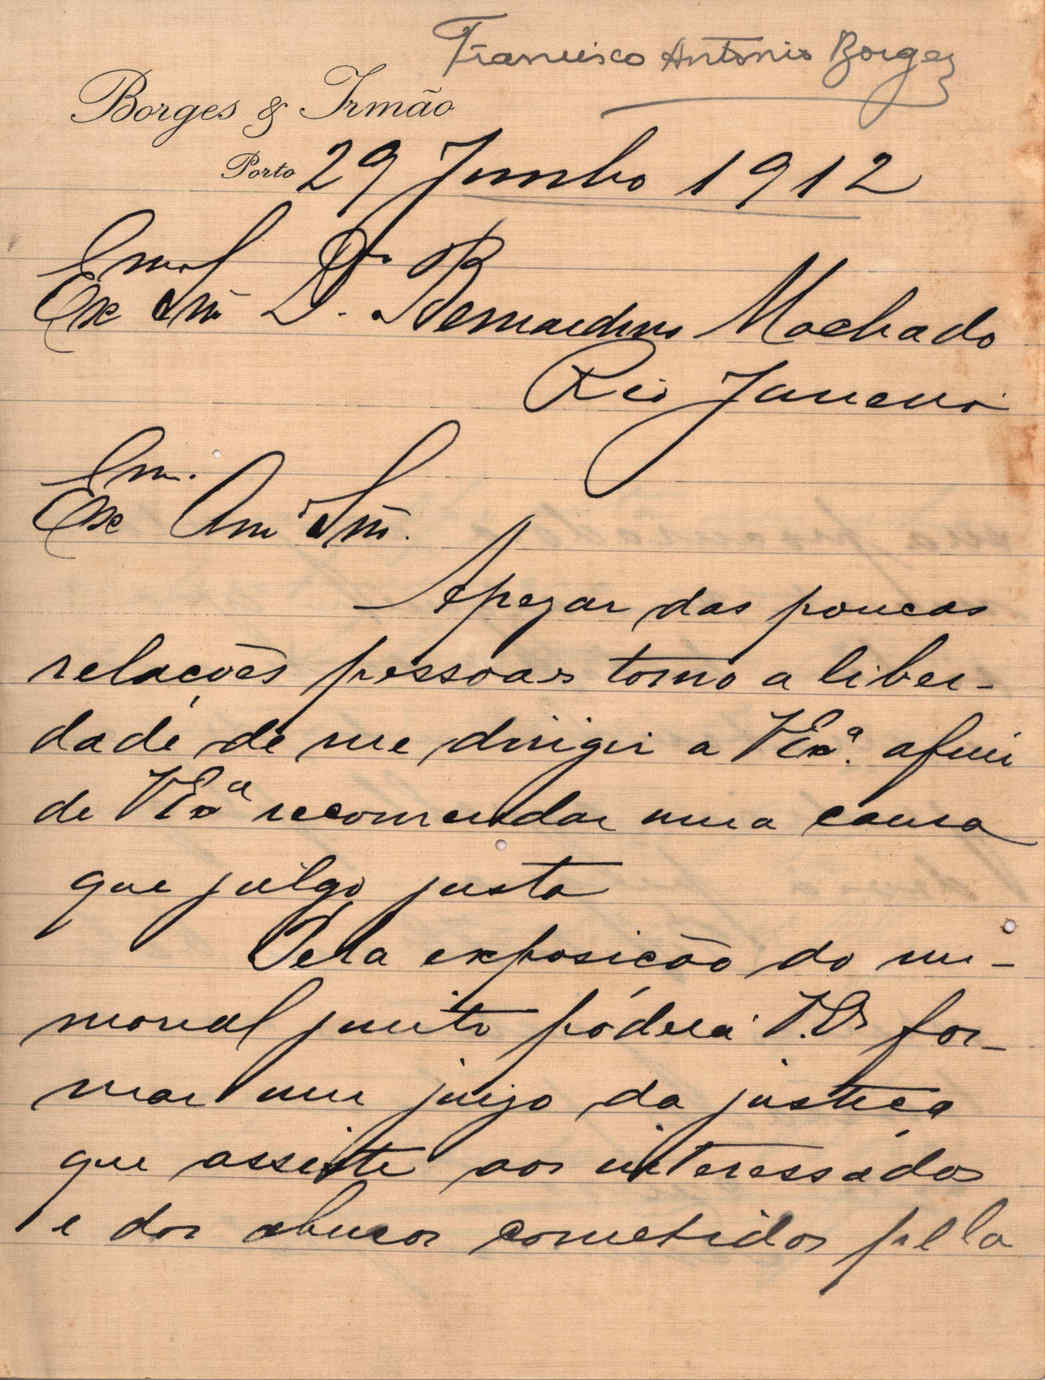 Francisco Antonio Borges
Borges & Irmão
Porto 29 Junho 1912
Exmo Snr Dr. Bernardino Machado
Rio Janeiro
Exmo Amo Snr.
Apezar das poucas
relações pessoaes tomo a liber-
dade de me dirigir a VExª. afim
de VExª recomendar uma causa
que julgo justa
Pela exposição do me-
morial junto poderá V.Ex for-
mar um juizo da justiça
que assiste aos interessados
e dos abusos cometidos pela